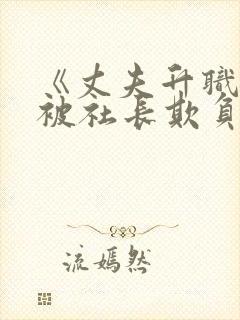 《丈夫升職
被社長欺負
流嫣然